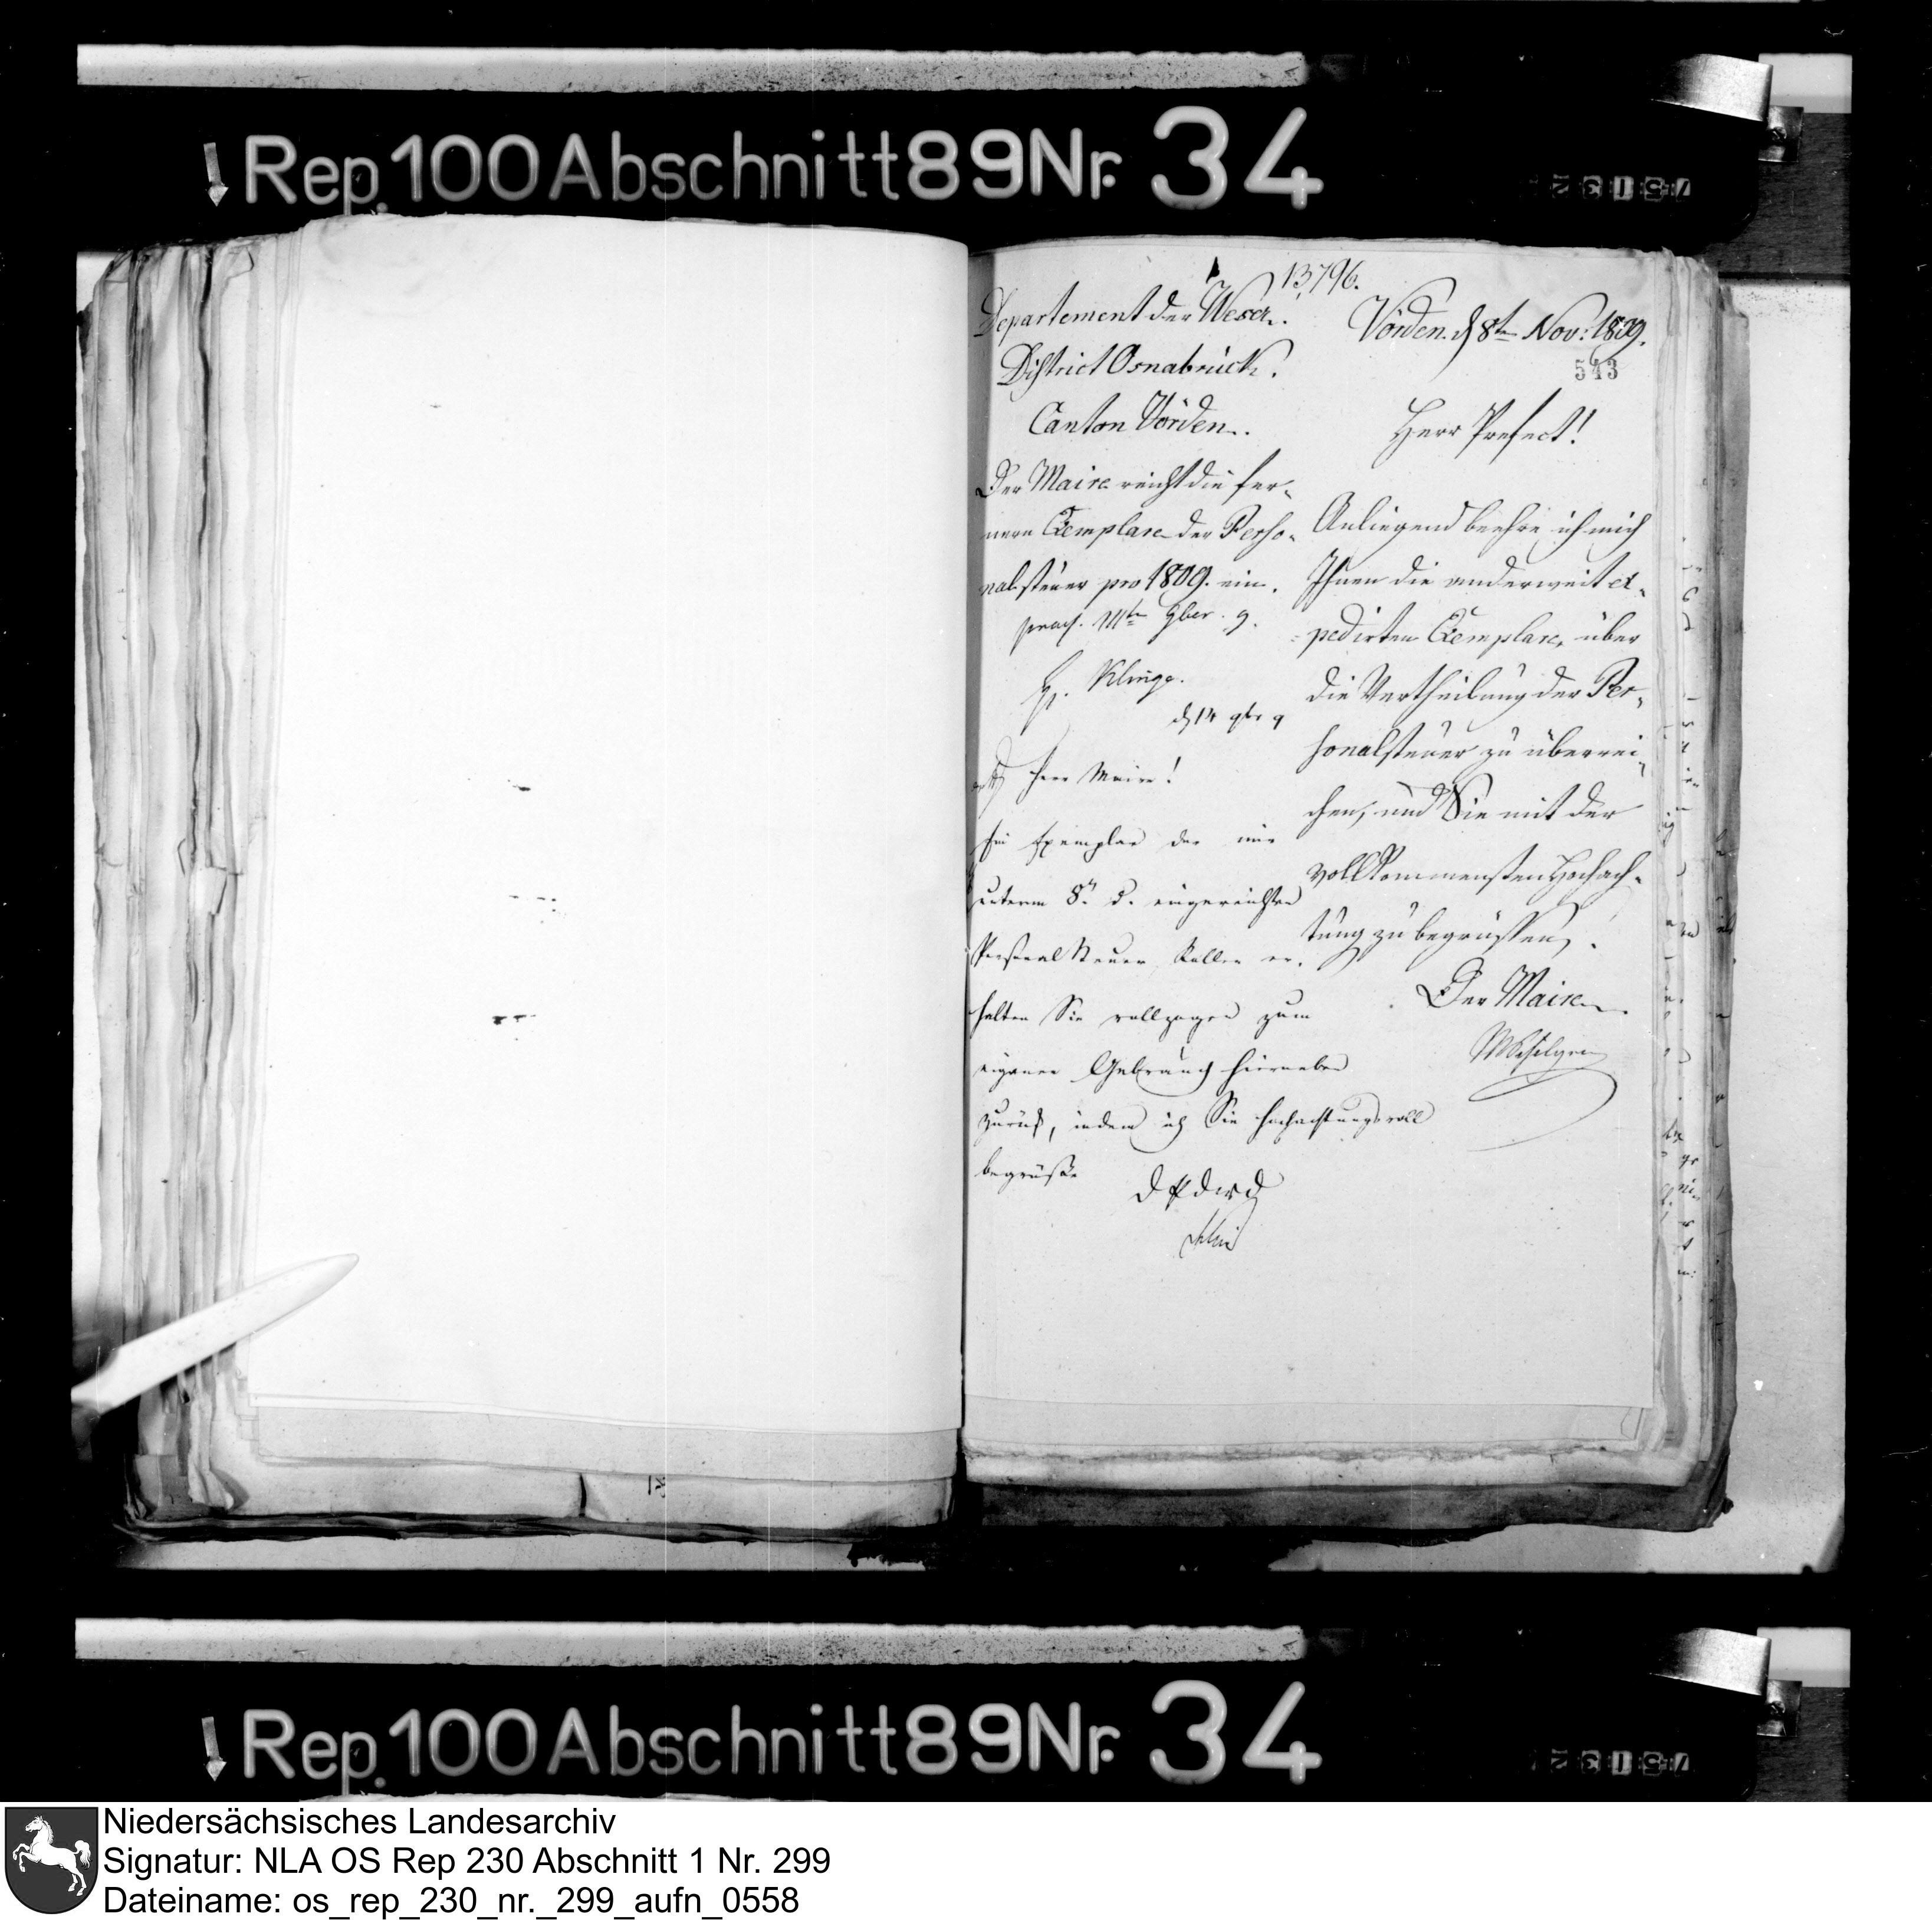 Rep. 100 Abschnitt 89 Nr. 34
13,796.
Departement der Weser.
District Osnabrück.
Canton Vörden.
Der Maire reicht die fer-
nern Exemplare der Perso-
nalsteuer pro 1809. ein.
praes. 11ten 9ber. 9.
H. Klinge.
d 14 9br 9
Herr Maire!
Ein Exemplar der mir
unterm 8n d. eingereichten
Personal Steuer Rollen er-
halten Sie vollzogen zum
eigenen Gebrauch hierneben
zurück, indem ich Sie hochachtungsvoll
begrüße
Vörden d 8ten Nov: 1809.
543
Herr Prefect!
Anliegend beehre ich mich
Ihnen die anderweit ex-
pedirten Exemplare, über
die Vertheilung der Per-
sonalsteuer zu überrei-
chen, und Sie mit der
vollkommensten Hochach-
tung zu begrüssen.
Der Maire
Rep. 100 Abschnitt 89 Nr. 34
Niedersächsisches Landesarchiv
Signatur: NLA OS Rep 230 Abschnitt 1 Nr. 299
Dateiname: os_rep_230_nr._299_aufn_0558